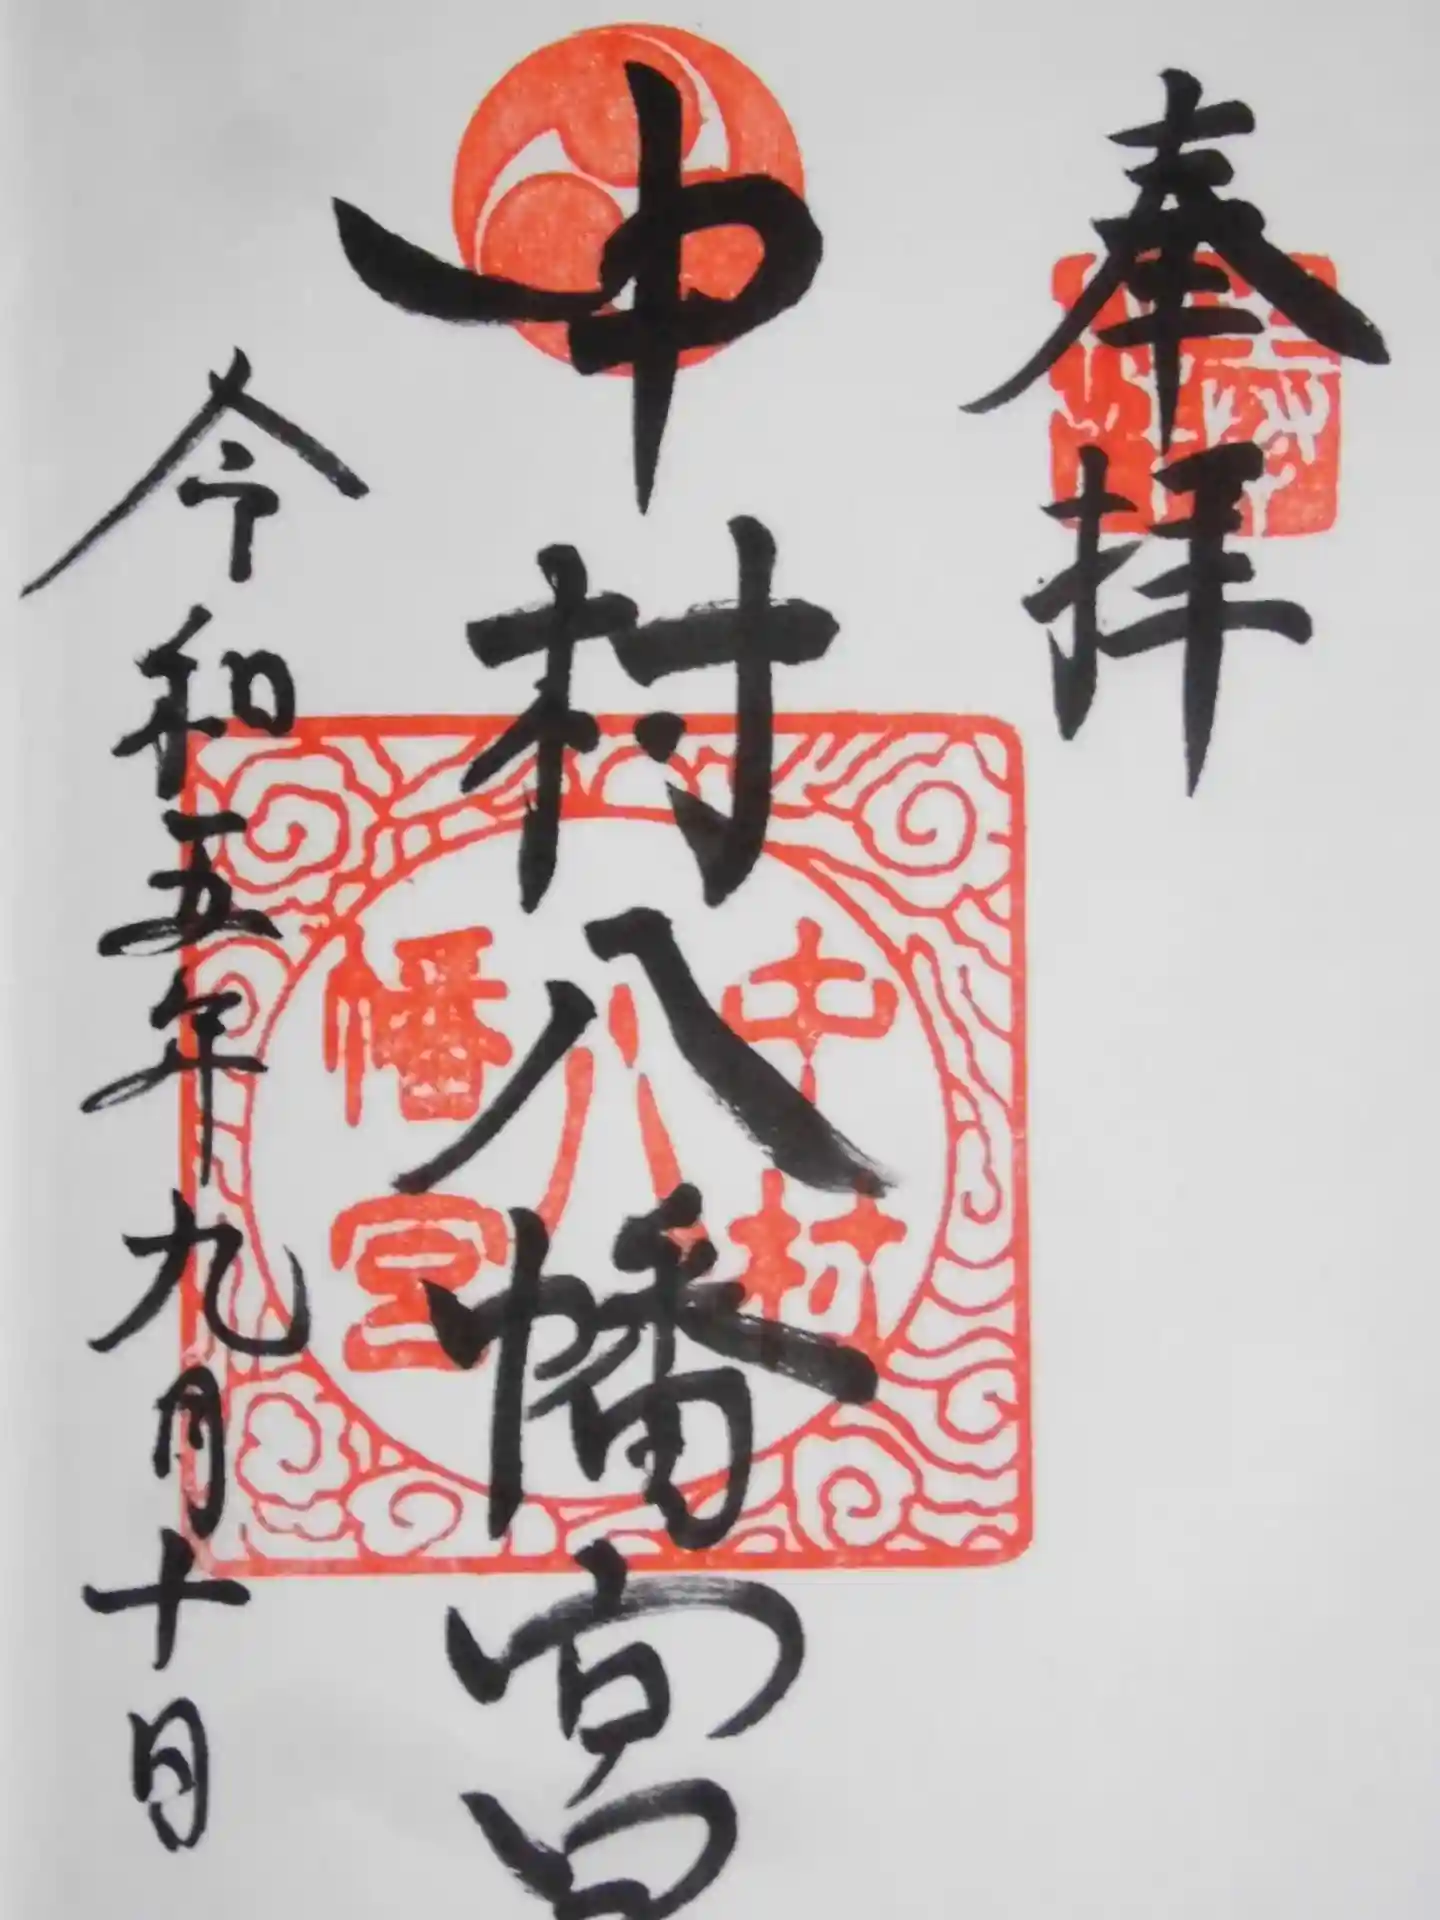 奉拝
中村八幡宮
中村八幡宮
令和五年九月十日